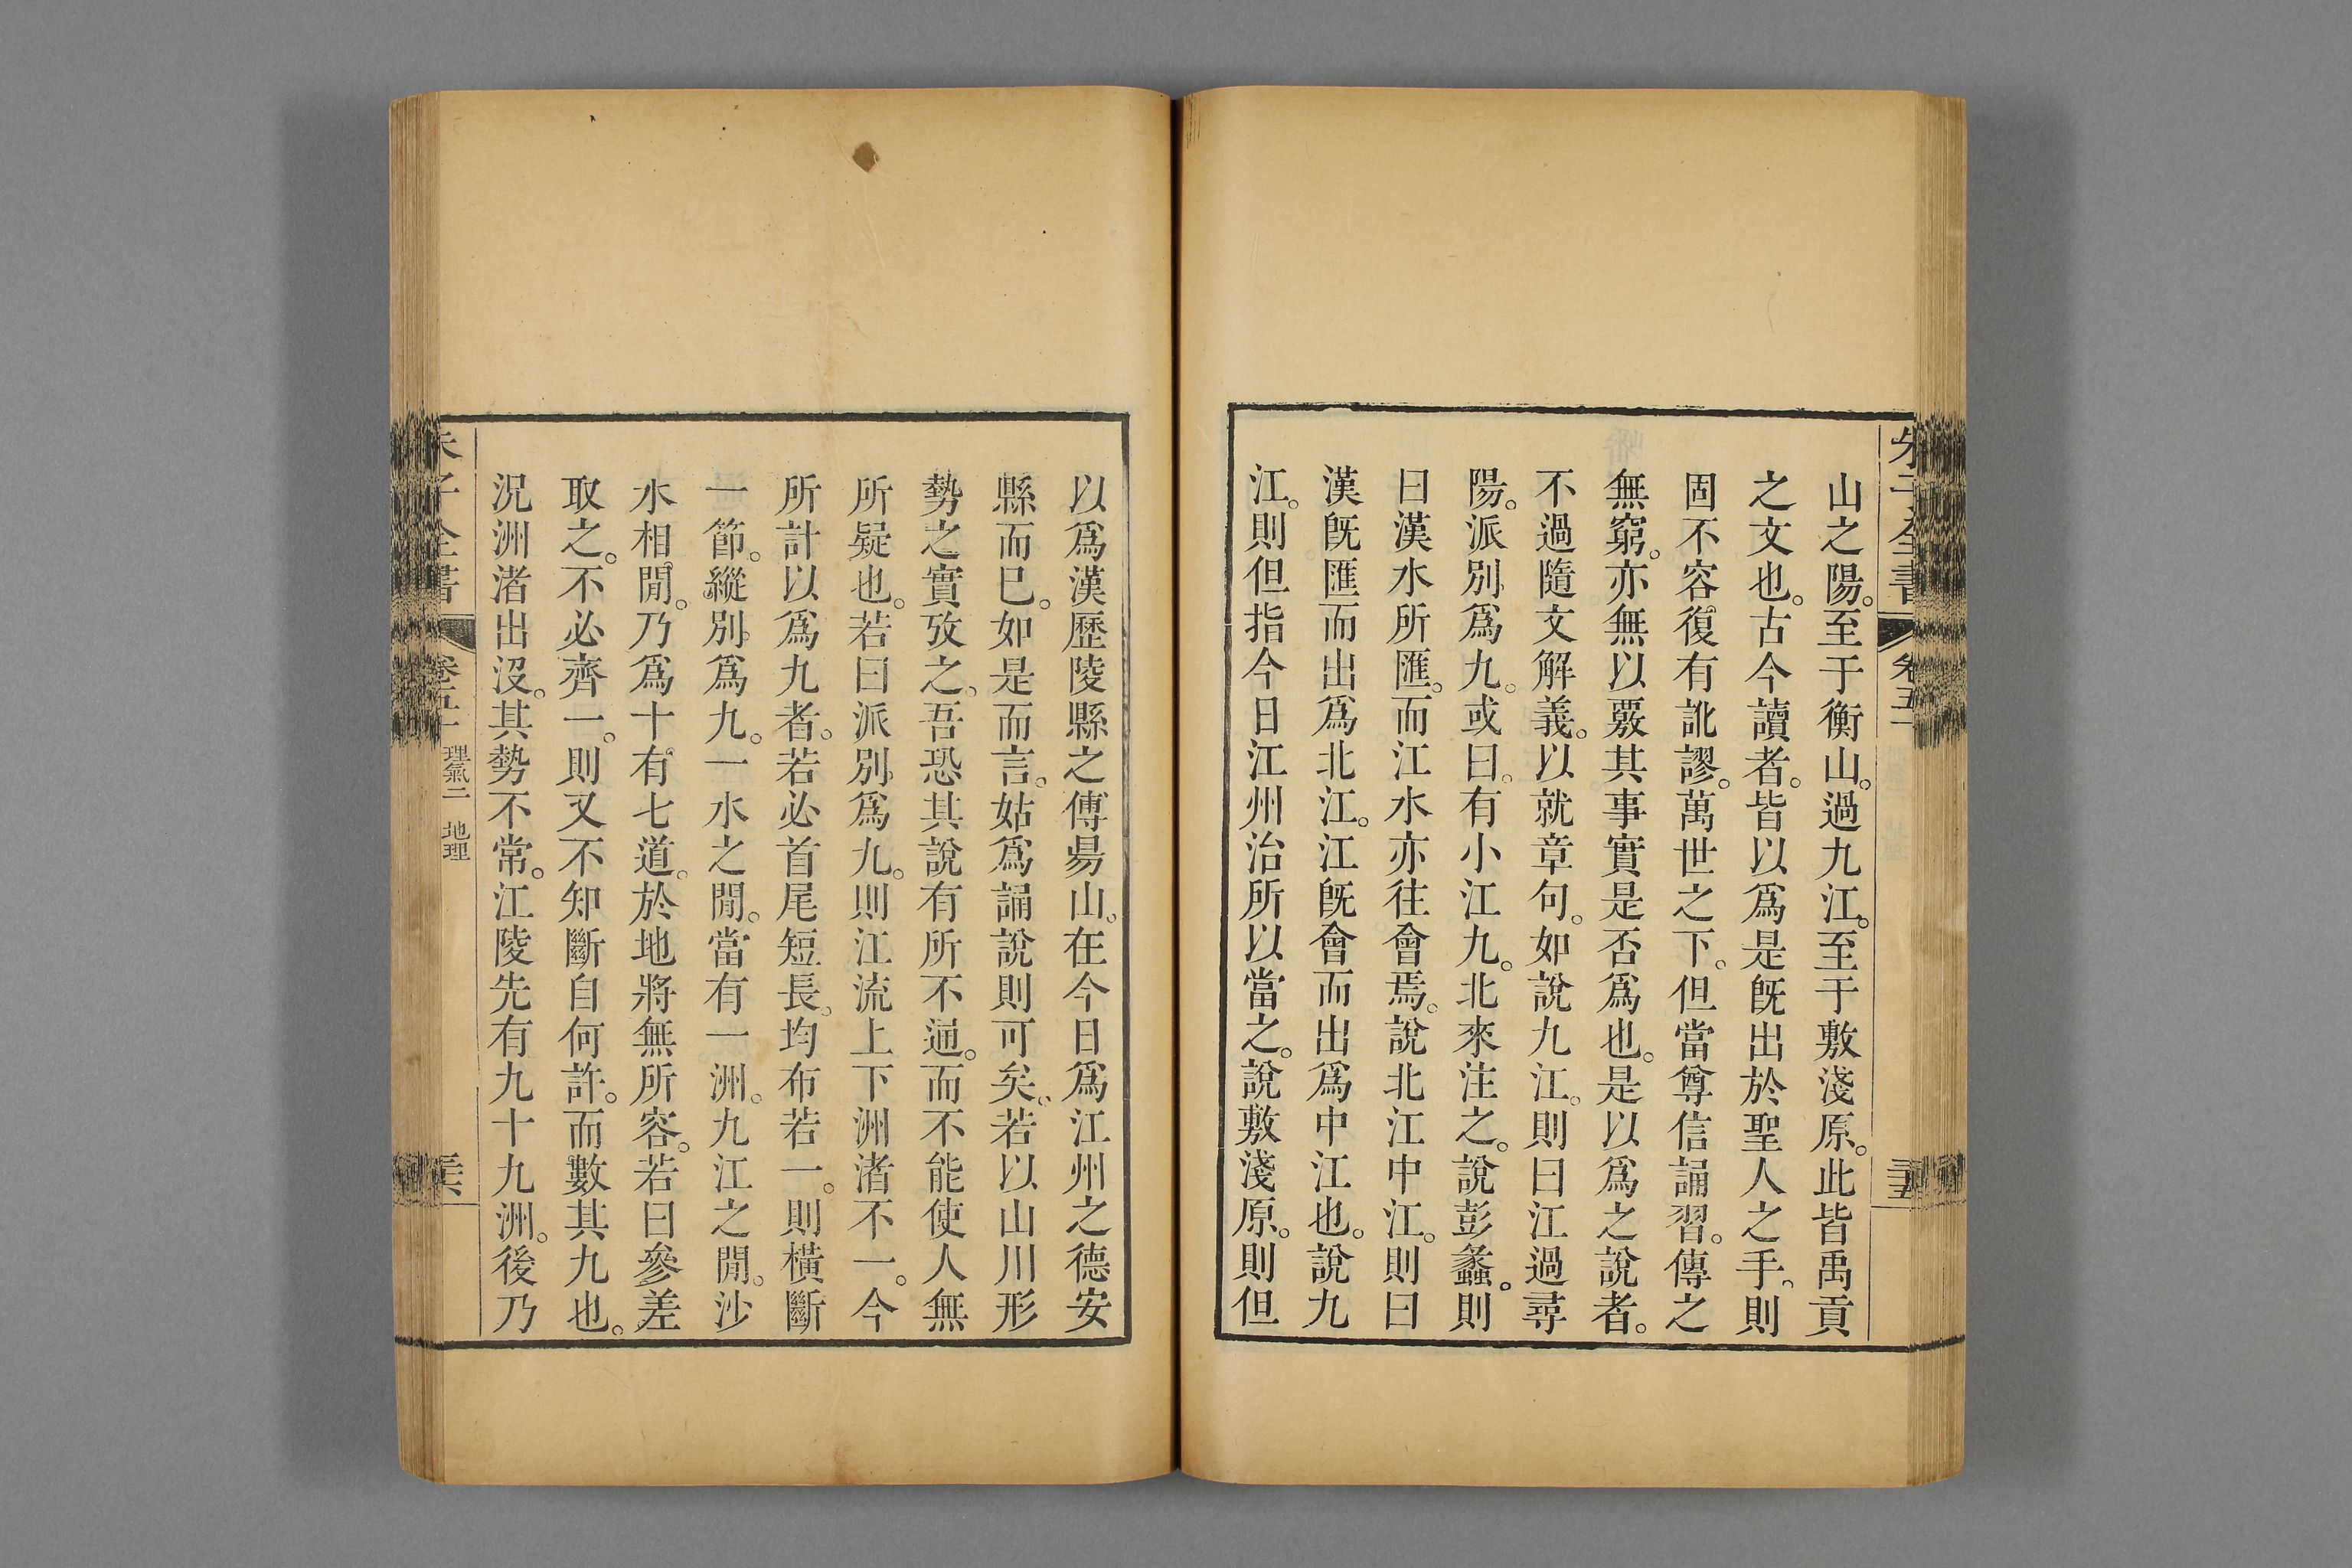 朱子全書 卷五十 三五
山之陽。至于衡山。過九江。至于敷淺原。此皆禹貢
之文也。古今讀者。皆以爲是既出於聖人之手。則
固不容復有訛謬。萬世之下。但當尊信誦習。傳之
無窮。亦無以覈其事實是否爲也。是以爲之說者。
不過隨文解義。以就章句。如說九江。則曰江過尋
陽。派別爲九。或曰。有小江九。北來注之。說彭蠡。則
曰漢水所匯。而江水亦往會焉。說北江中江。則曰
漢既匯而出爲北江。江既會而出爲中江也。說九
江。則但指今日江州治所以當之。說敷淺原。則但
以爲漢歷陵縣之傅昜山。在今日爲江州之德安
縣而已。如是而言。姑爲誦說則可矣。若以山川形
勢之實攷之。吾恐其說有所不通。而不能使人無
所疑也。若曰派別爲九。則江流上下洲渚不一。今
所計以爲九者。若必首尾短長。均布若一。則橫斷
一節。縱別爲九。一水之閒。當有一洲。九江之閒。沙
水相閒。乃爲十有七道。於地將無所容。若曰參差
取之。不必齊一。則又不知斷自何許。而數其九也。
況洲渚出沒。其勢不常。江陵先有九十九洲。後乃
朱子全書 卷五十 理氣二 地理 三六